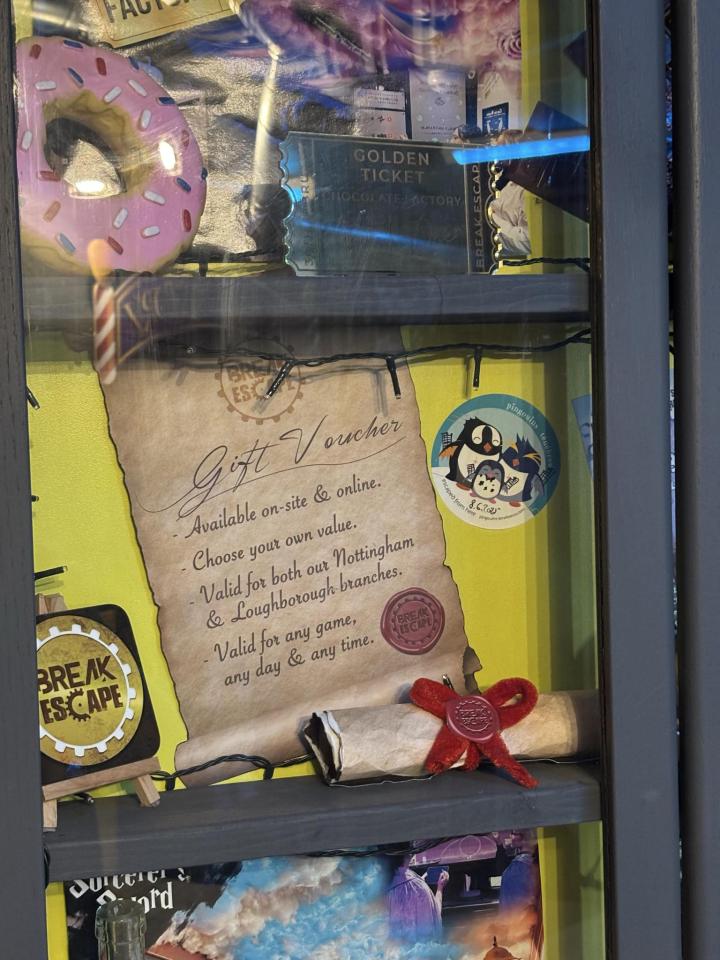 FACTORY
GOLDEN
TICKET
CHOCOLATE FACTORY
BREAK ESCAPE
BREAK
ESCAPE
Gift Voucher
- Available on-site & online.
- Choose your own value.
- Valid for both our Nottingham
& Loughborough branches.
- Valid for any game,
any day & any time.
BREAK
ESCAPE
pingouins
escaped from here
BREAK
ESCAPE
BREAK
ESCAPE
Sorcerer's
Sword